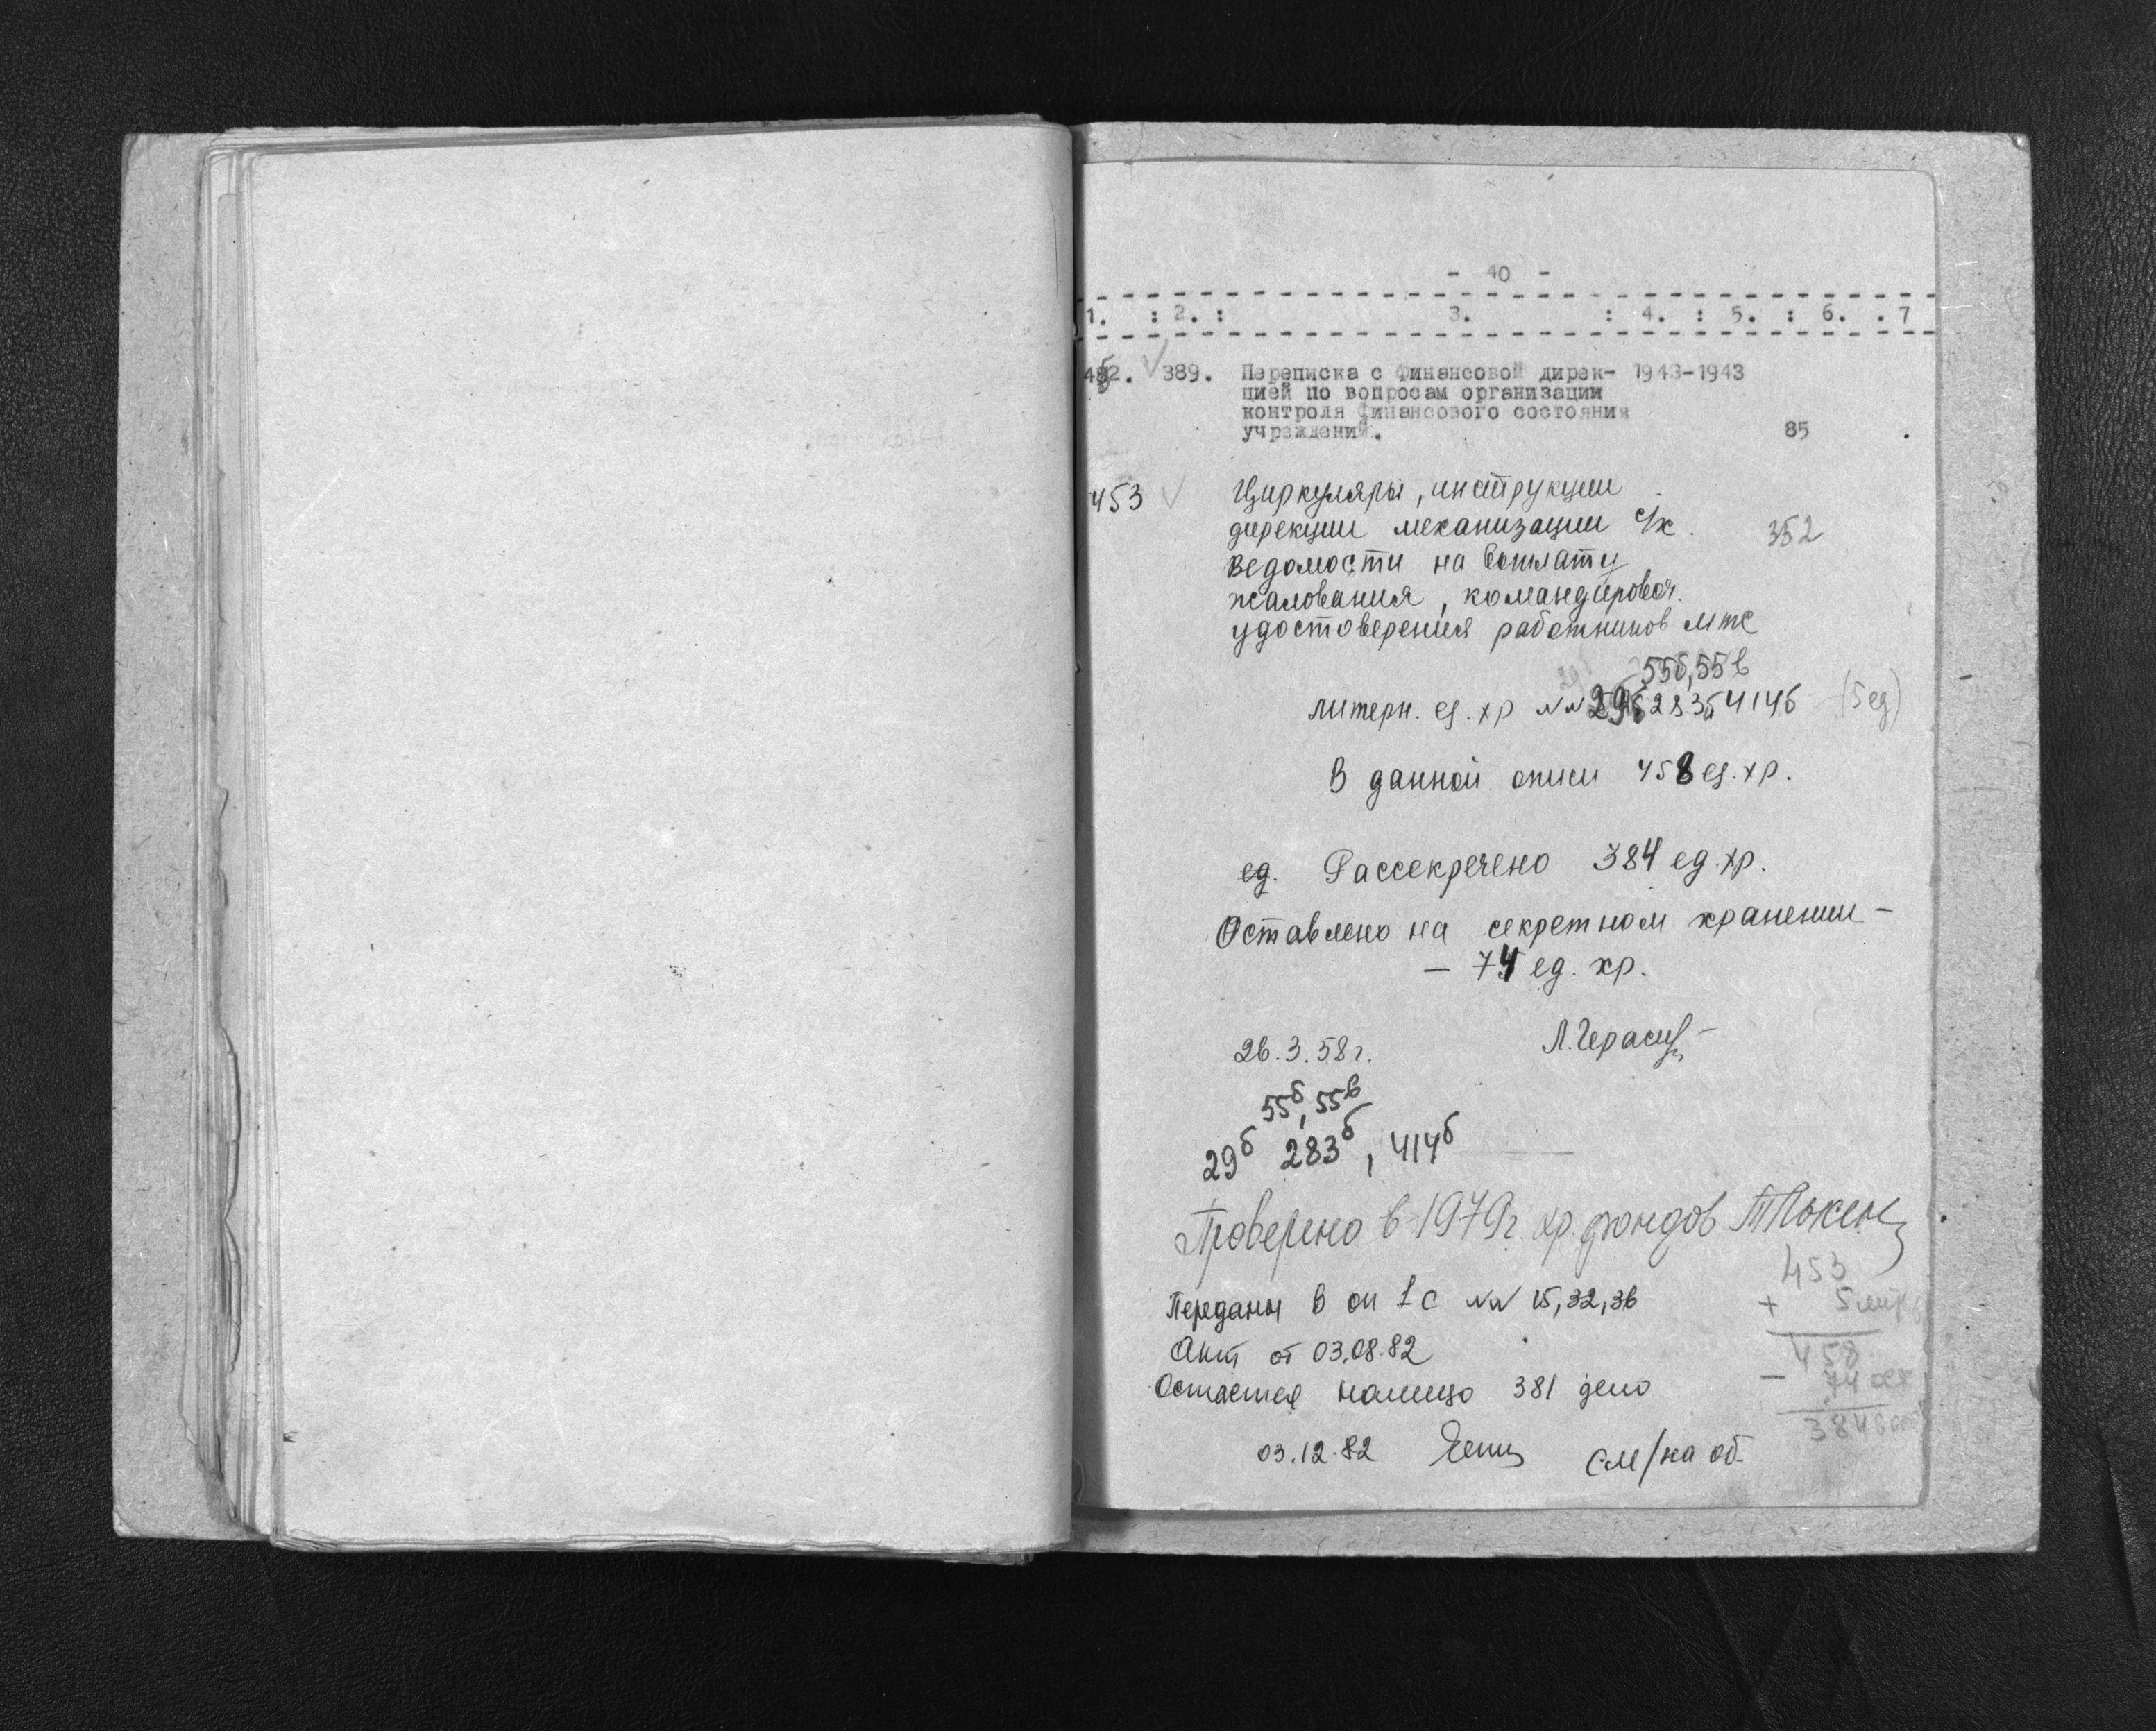 - 40 -
1. : 2. : 3. : 4. : 5. : 6. . 7
452. 389. Переписка с финансовой дирек- 1943-1943
цией по вопросам организации
контроля финансового состояния
учреждений. 85
453 Циркуляры, инструкции
дирекции механизации с/х. 352
Ведомости на выплату
жалования, командировоч.
удостоверения работников мтс
55б, 55в
литерн. ед. хр №№ 29б 283б 414б (5 ед)
В данной описи 458 ед. хр.
ед. Рассекречено 384 ед. хр.
Оставлено на секретном хранении -
- 74 ед. хр.
26.3.58 г. Л.
55б, 55в
29б 283б, 414б
Проверено в 1979 г. хр. фондов
453
Переданы в оп 1с №№ 15, 32, 36
+ 5 литер
Акт от 03.08.82
458
Остается налицо 381 дело
- 74
384
03.12.82 см/на об